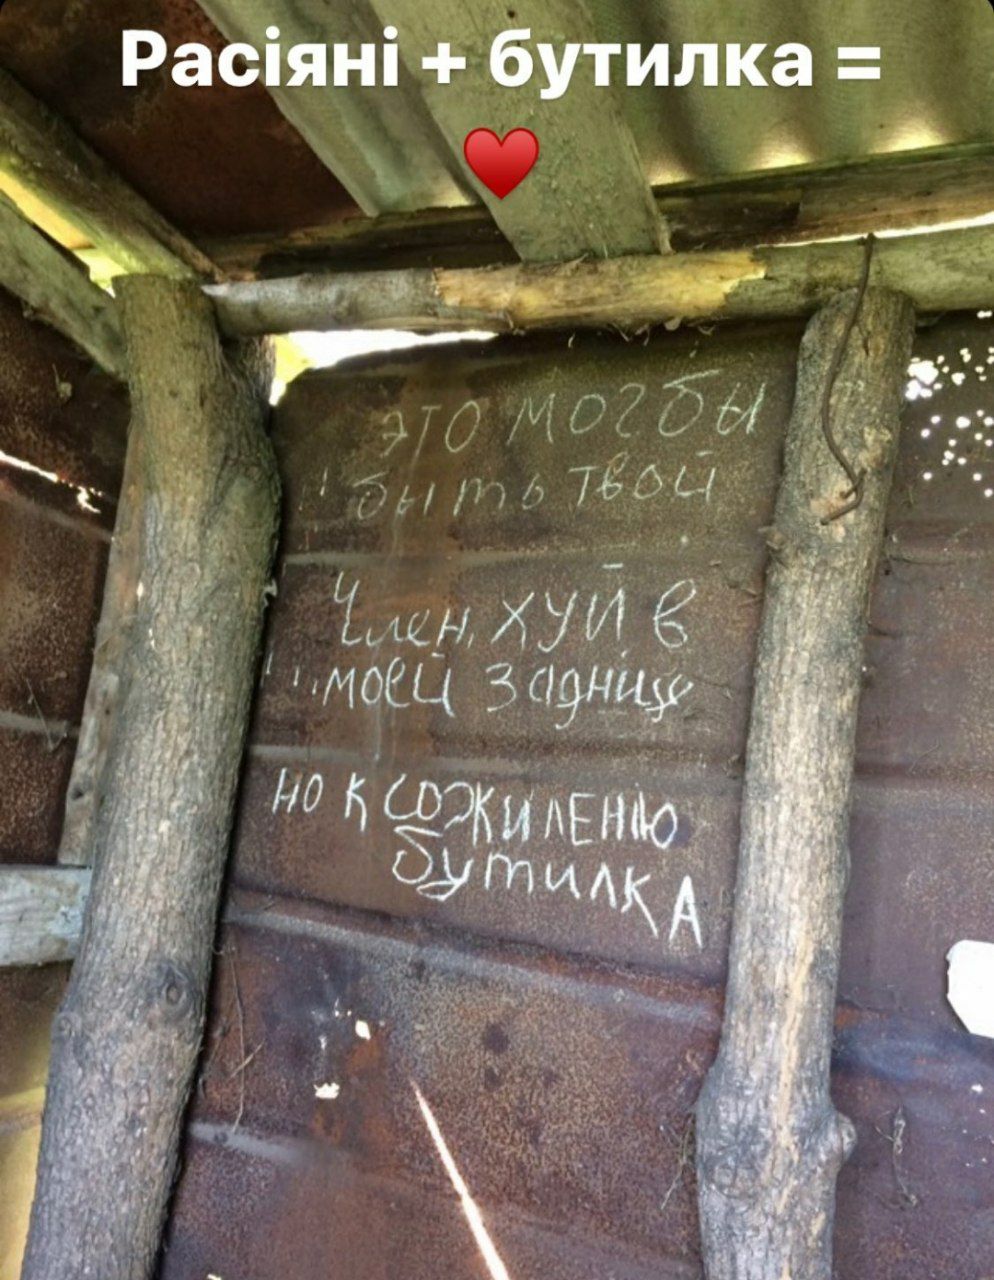 Расіяні + бутилка =
это могбы
быть твой
Член, хуй в
моей задніце
но к сожилению
бутилка